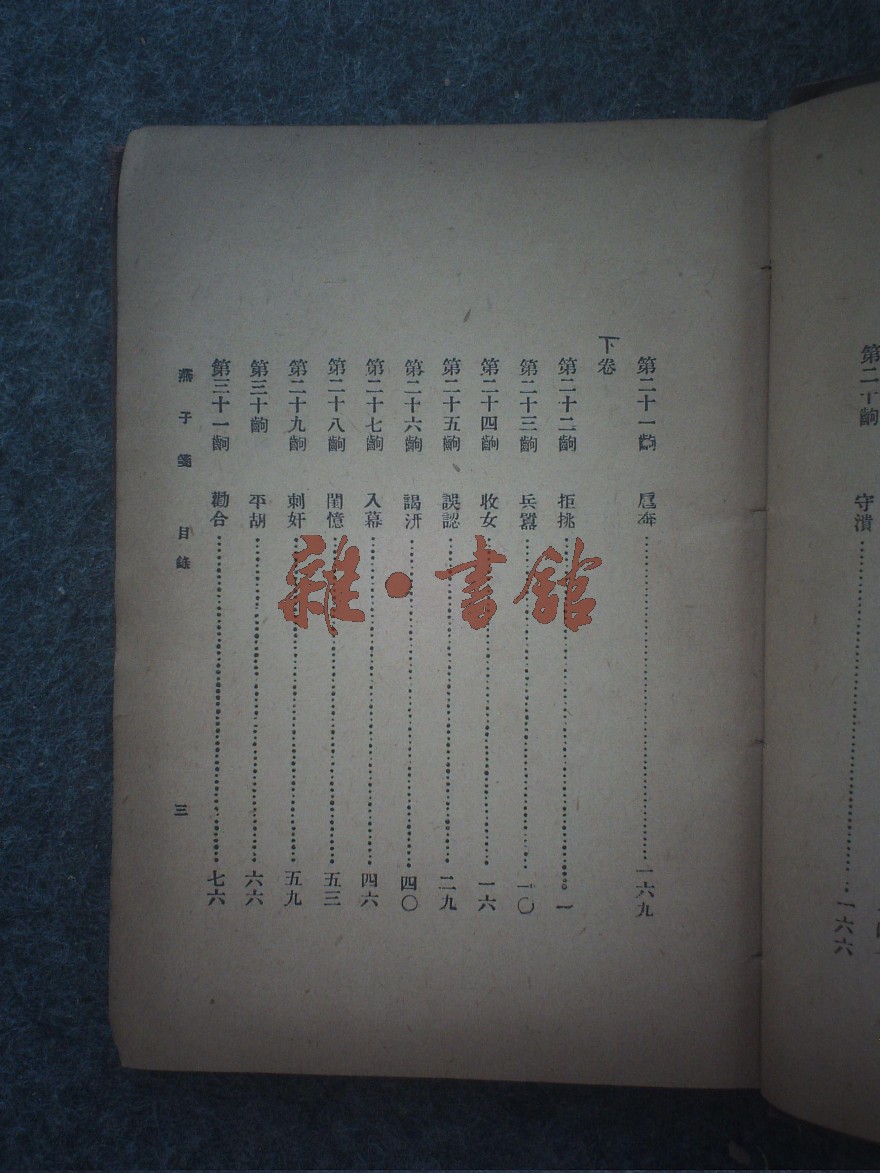 第二十齣 守潰 一六六
第二十一齣 扈奔 一六九
下卷
第二十二齣 拒挑 一
第二十三齣 兵囂 一〇
第二十四齣 收女 一六
第二十五齣 誤認 二九
第二十六齣 謁汧 四〇
第二十七齣 入幕 四六
第二十八齣 閨憶 五三
第二十九齣 刺奸 五九
第三十齣 平胡 六六
第三十一齣 勸合 七六
燕子箋 目錄 三
雜·書館